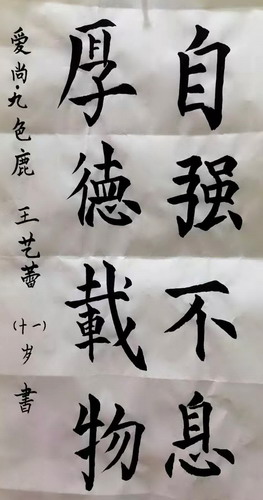 自强不息
厚德載物
爱尚·九色鹿 王艺蕾 (十一)岁 書